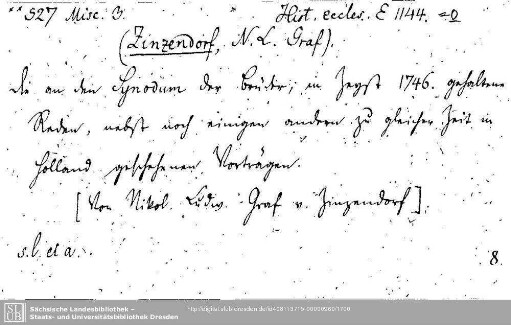 **527 Misc. 3. Hist. eccles. E 1144. =0
(Zinzendorf, N. L. Graf).
Die an den Synodum der Brüder, in Zeyst 1746. gehaltene
Reden, nebst noch einigen andern zu gleicher Zeit in
Holland geschehenen Vorträgen.
[Von Nikol. Ludw. Graf v. Zinzendorf].
s. l. et a. 8.
SLUB Sächsische Landesbibliothek –
Staats- und Universitätsbibliothek Dresden